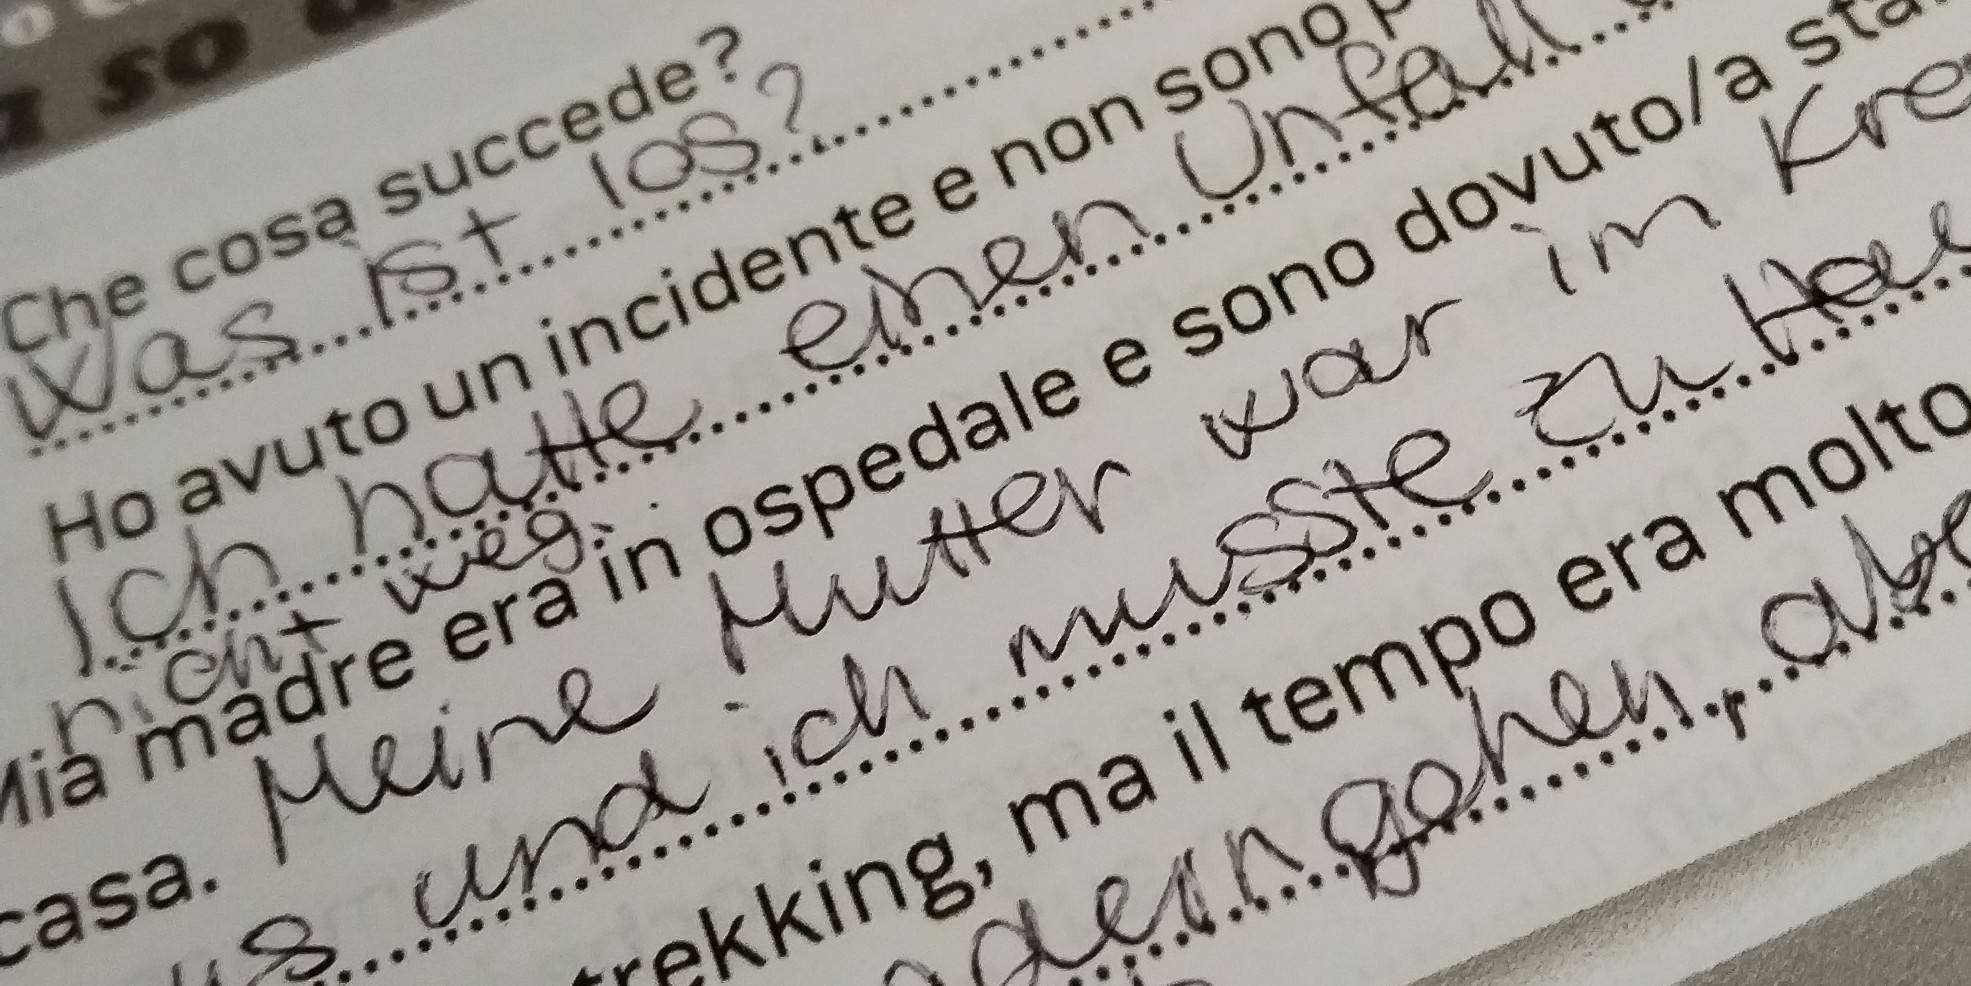 so
Che cosa succede?
Was ist los?
Ho avuto un incidente e non sono
Ich hatte einen Unfall
nicht weg.
Mia madre era in ospedale e sono dovuto/a
casa. Meine Mutter war im
und ich musste zu
trekking, ma il tempo era molto